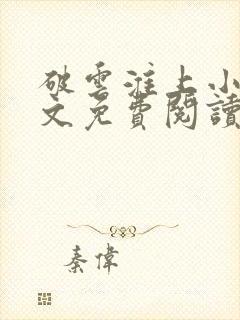 破雲淮上小
文免費閱讀
秦偉